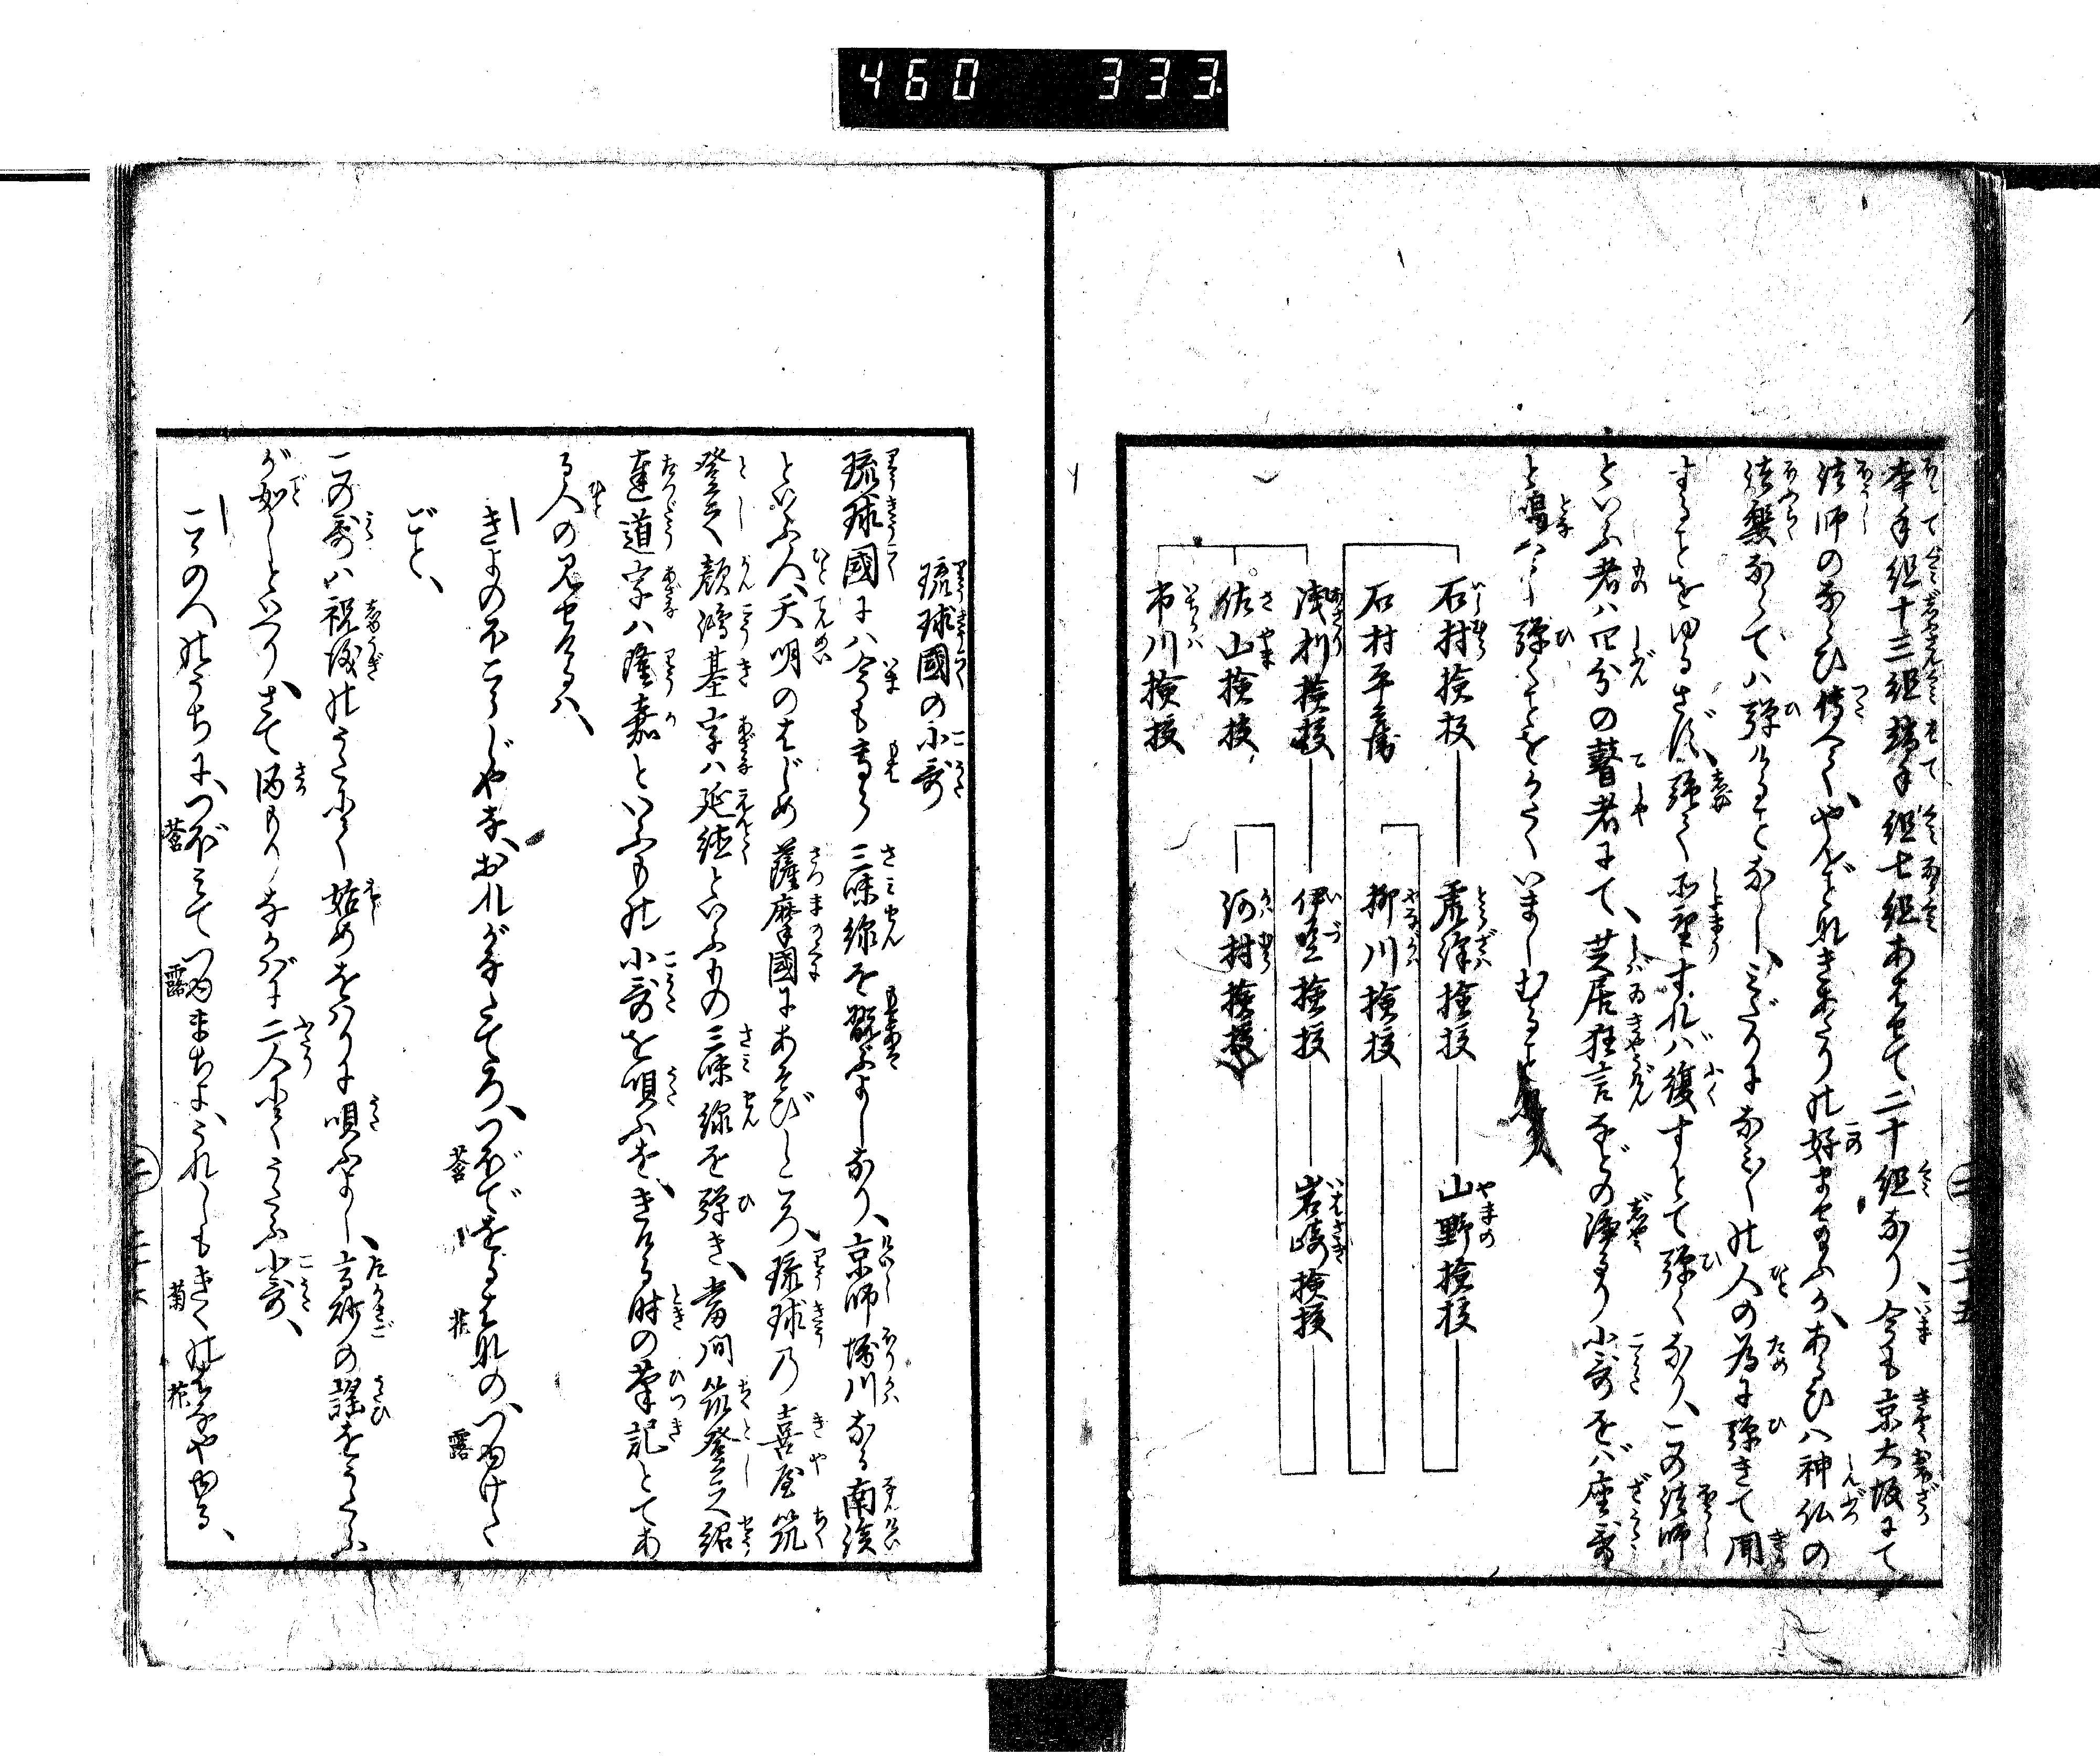 460 333
本手組十三組端手組七組あはせて二十組なり、今も京大坂にて
法師のならひ傳へて、やんごとなききたりの好ませ給ふか、あるひハ神仏の
法樂ならでハ彈けることなし、みだりになべての人の為に彈きて聞
することをゆるさず、強て所望すれバ復すとて彈くなり、この法師
といふ者ハ四分の瞽者にて、芝居狂言などの浄るり小哥をバ座哥
と唱へて彈くことをかたくいましむること
石村検校
虎澤検校
山野検校
石村平
柳川検校
浅利検校
伊豆検校
岩崎検校
佐山検校
河村検校
市川検校
二 二十五
琉球國の小哥
琉球國にハ今も専ら三味線を翫ぶよしなり、京師堀川なる南渓
といふ人、天明のはじめ薩摩國にあそびしころ、琉球乃喜屋筑
登之顔鴻基字ハ延徳といふもの三味線を彈き、當間筑登之紹
達道字ハ隆嘉といふもの小哥を唄ふを、きける時の筆記とてあ
る人の見せけるハ、
きよのふこらじやな、おれがなたてろ、つぼでをるはなの、つゆけた
ごと、
蒼 花 露
この哥ハ祝儀のうたにて始めをハりに唄ふよし、高砂の謡をうたふ
が如しといへり、さて酒もりなかばに二人にてうたふ小哥、
こゝのへのうちに、つぼみてつゆまちよ、うれしもきくの花やゆる、
蒼 露 菊 花